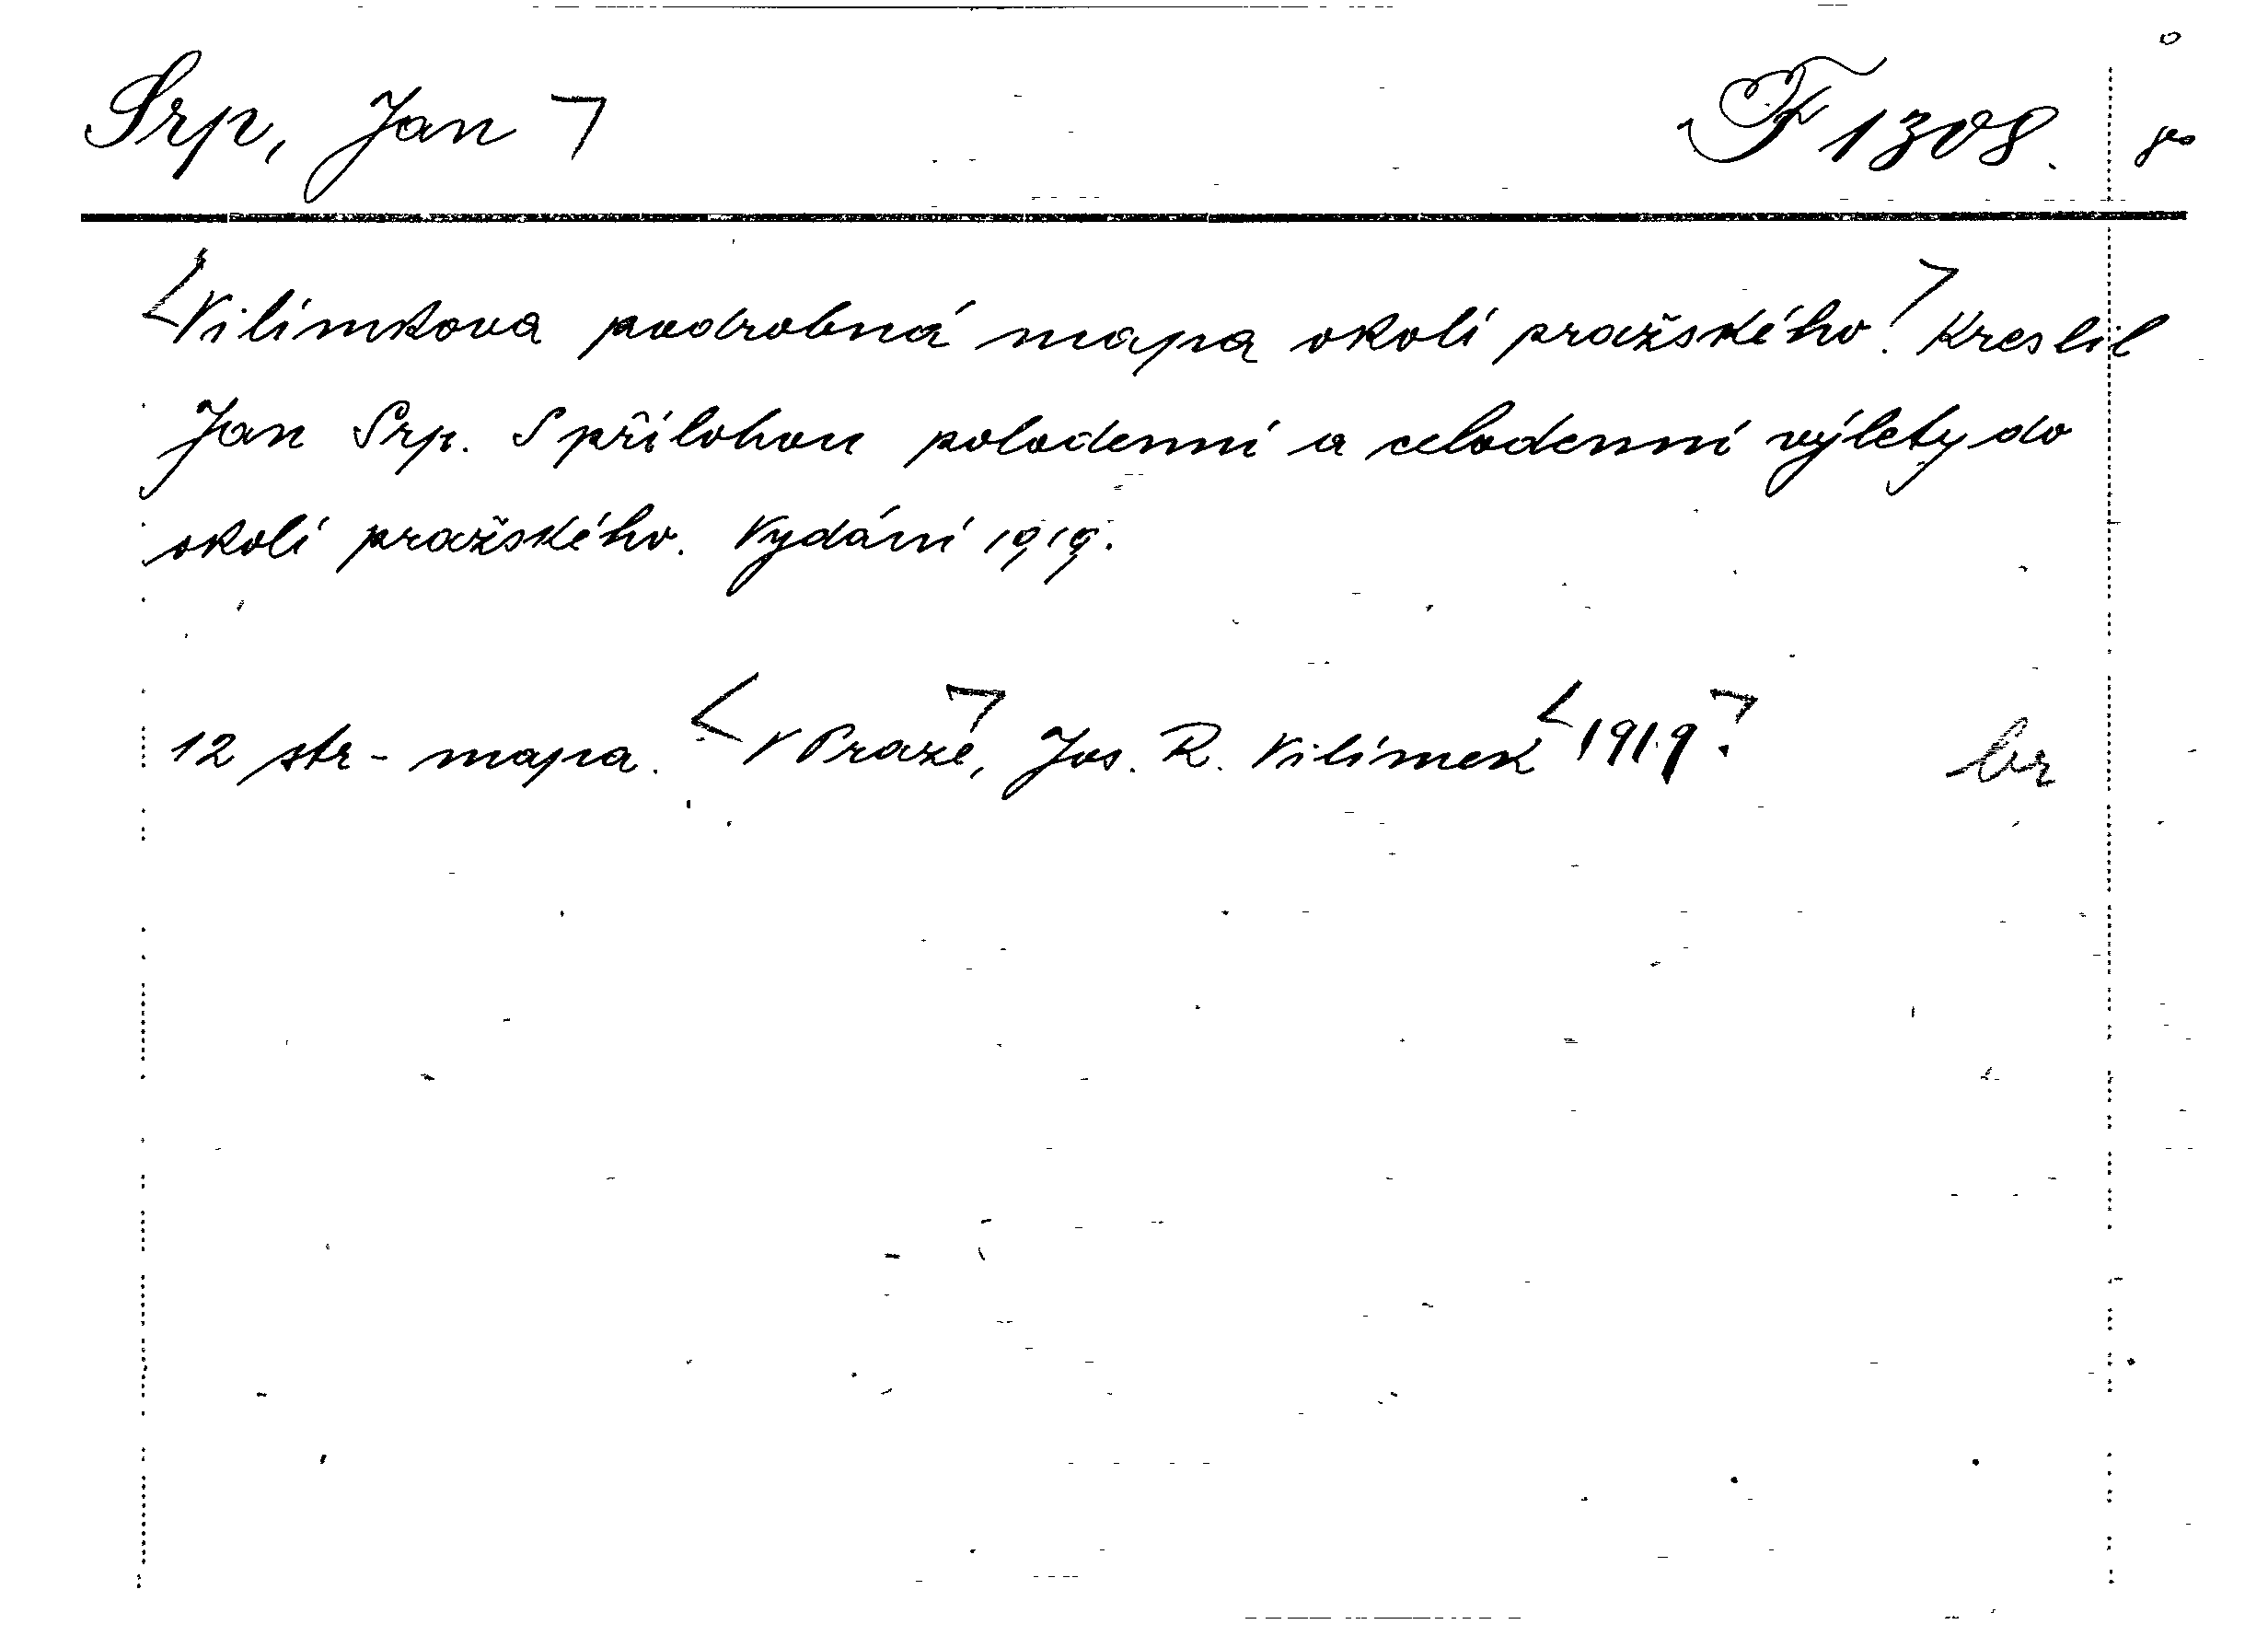 Srp, Jan F 1308.
Vilímkova podrobná mapa okolí pražského. Kreslil
Jan Srp. S přílohou polodenní a celodenní výlety do
okolí pražského. Vydání 1919.
12 str - mapa. V Praze, Jos. R. Vilímek 1919. br